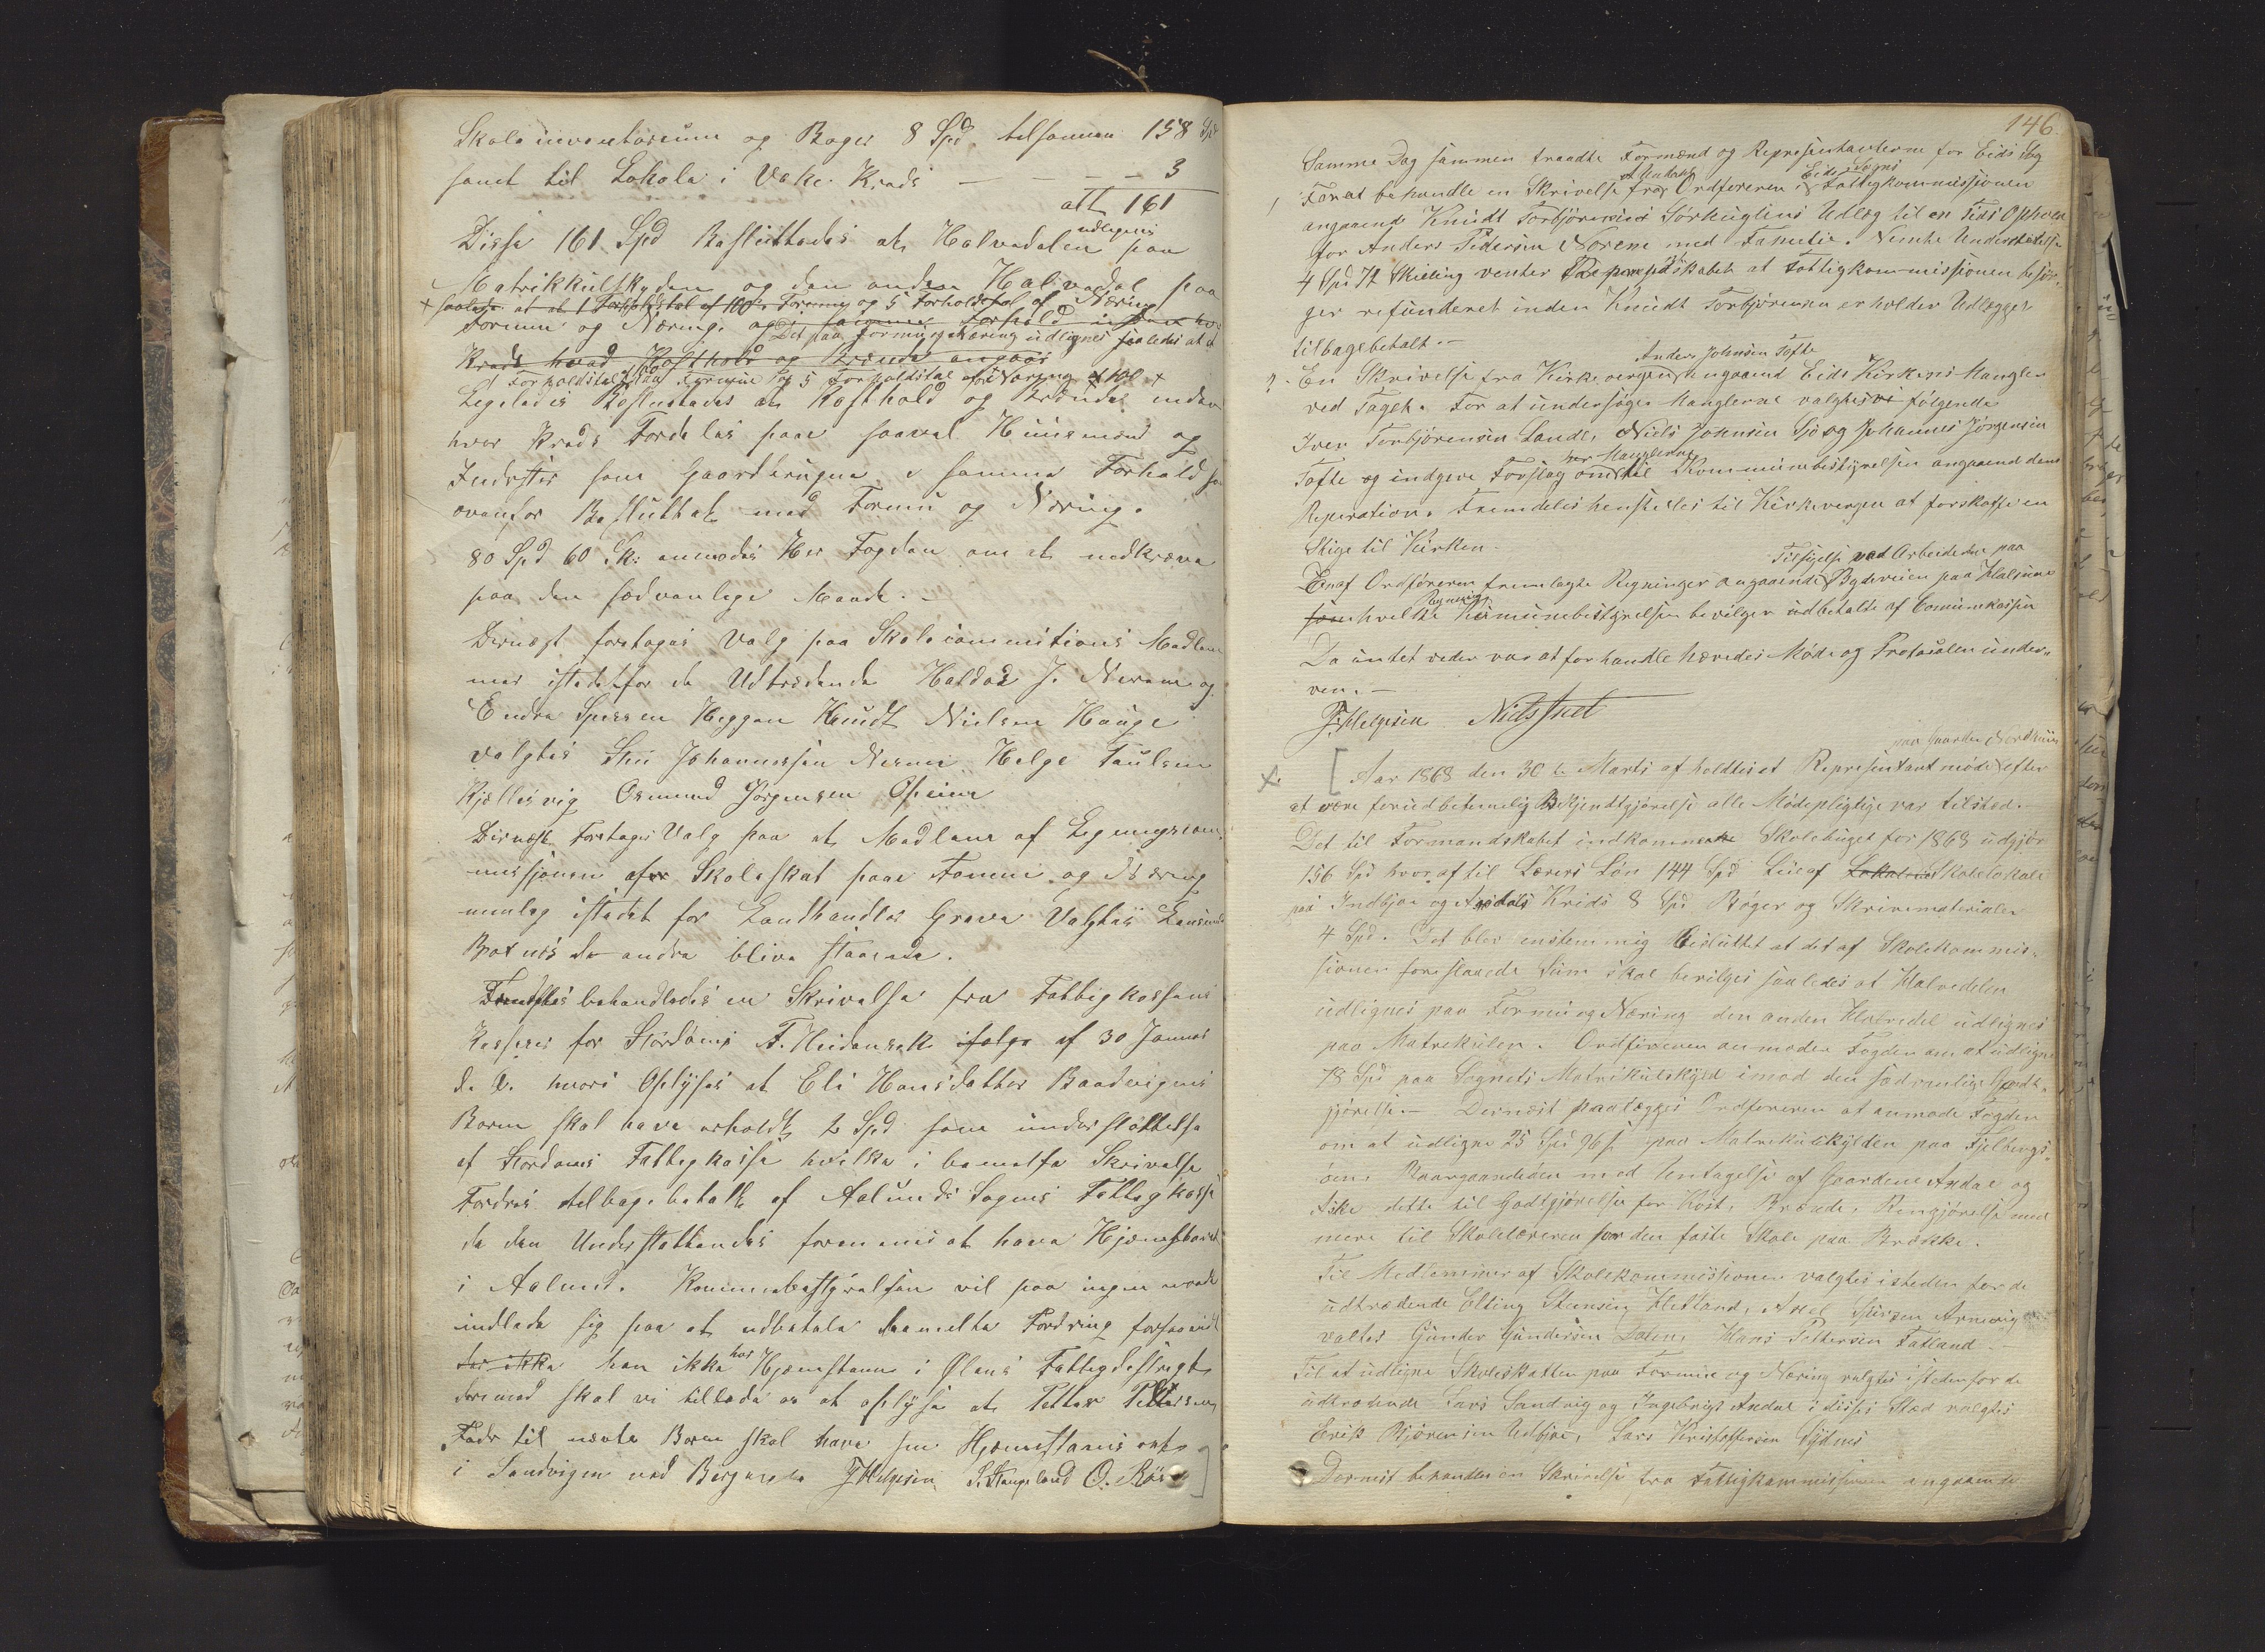 Skoleinventarium og Bøger 8 Spd. tilsammen 158 Spd
samt til Lokale i Vake Kreds — — — 3
alt 161
Disse 161 Spd Besluttedes at Halvedelen udlignes paa
Matrikkulskylden og den anden Halvedel paa
+ saaledes at et 1 Forholdstal af 100 Formue og 5 Forholdstal af Næring
Formue og Næring. og i samme Forhold inden hver
Det paa Formue og Næring udlignes saaledes at et
Kreds hvad Kosthold og Brænde angaar
1 Forholdstal af 100 Formue og 5 Forholdstal af Næring
Ligeledes Besluttedes at Kosthold og Brænde inden
hver Kreds Fordeles paa saavel Huusmænd og
Inderster som Gaardbrugere i samme Forhold som
ovenfor Besluttet med Formu og Næring.
80 Spd 60 Sk: anmodes Her Fogden om at nedkræve
paa den sædvanlige Maade. —
Dernægt foretoges Valg paa Skolecommitions Medlem
mer istedetfor de Udtrædende Haldor J. Nerem og
Endre Heggen Knudt Nielsen Hauge
valgtes Johannessen Nerem Helge Paulsen
Kjellesvig Osmund Jørgensen Opheim
Dernæst Foretoges Valg paa et Medlem af Ligningscom
missjonen af Skoleskat paa Formue og Næring
nemlig istedet for Landhandler Greve Valgtes
Botnes de andre blive staaende.
Fremdeles behandledes en Skrivelse fra Fattigkassens
Kasserer for Stordøens F. Heidenrek ifølge af 30 Januar
d. A. hvori Oplyses at Eli Hansdatter Baadvigens
Barn skal have erholdt 2 Spd som understøttelse
af Stordøens Fattigkasse hvilke i bemelte Skrivelse
Fordres tilbagebetalt af Aalunds Sogns Fattigkasse
da den Understøttendes formenes at have Hjemstavn
i Aalund. Kommunebestyrelsen vil paa ingen maade
indlade sig paa at udbetale bemelte Fordring forsaavidt
der ikke han ikke har Hjemstavn i Ølens Fattigdestrigt
derimod skal vi tillade os at oplyse at Petter Pettersen
Fader til nævnte Barn skal have sin Hjemstavns ret
i Sandvigen ved Bergen JHelgesen S. Stangeland O. Røs
146.
Samme Dag sammen traadte Formænd og Representanterne for Eids Sog
1. For at behandle en Skrivelse fra Ordføreren i Eids Sogns Fattigkommissionen
angaaende Knudt Torbjørnsens Sørhuglens Udlæg til en Tids Ophold
for Anders Pedersen Norem med Familie. Nemte Understøttelse
4 Spd 72 Skilling venter at Fattigkommissionen besør-
ger refunderet inden Knudt Torbjørnsen erholder Udlægget
tilbagebetalt. —
2. En Skrivelse fra Kirkevergen Anders Johnsen Tofte angaaend Eids Kirkens Mangler
ved Taget. For at undersøge Manglerne valgtes vi følgende
Iver Torbjørensen Lande, Niels Johnsen Sjø og Johannes Jørgensen
Tofte og indgive Forslag om Manglerne til Kommunebestyrelsen angaaend dens
Reperation. Fremdeles henstilles til Kirkevergen at forskaffe en
Stige til Kirken.
En af Ordføreren fremlagte Regninger angaaende Tilsyelse ved Arbeidet paa Bygdeveien paa Halsene
som hvilke Regning Kummunebestyrelsen bevilger udbetalte af Comunekassen
Da intet vider var at forhandle hævedes Møde og Protocolen under-
ven. —
JHelgesen Niels
paa Gaarden Nordhuus
X. [ Aar 1863 den 30te Marts afholdtes et Representantmøde efter
at være forudbetemelig Bekjendtgjørelse alle Mødepligtige var tilsted.
Det til Formandskabet indkommende Skolebuget for 1863 udgjør
156 Spd hvoraf til Lærers Løn 144 Spd Leie af Lokaler Skolelokale
paa Indbjoe og Axdals Kreds 8 Spd Bøger og Skrivematerialer
4 Spd. Det blev enstemmig Besluttet at det af Skolekommis-
sionen foreslaaede Sum skal bevilges saaledes at Halvedelen
udlignes paa Formu og Næring den anden Halvedel udlignes
paa Matrikulen. Ordføreren anmoder Fogden om at udligne
78 Spd paa Sognets Matrikulskyld imod den sædvanlige Godt-
gjørelse. — Dernæst paalægges Ordføreren at anmode Fogden
om at udligne 25 Spd 96 s paa Matrikulskylden paa Fjelbergs-
øen, Borgundøen med Untagelse af Gaardene Axdal og
Eske dette til Godtgjørelse for Kost, Brænde, Rengjørelse med
mere til Skolelæreren for den faste Skole paa Brække.
Til Medlemmer af Skolekommissionen valgtes isteden for de
udtrædende Elling Steensen Hetland, Axel Arnevig
valtes Gunder Gundersen Dalen, Hans Pettersen Fatland —
Til at udligne Skoleskatten paa Formue og Næring valgtes istedenfor de
udtrædende Lars Sandvig og Ingebrigt Axdal i disses Sted valgtes
Erik Bjørensen Udbjoe, Lars Kristoffersen Sydnes
Dernæst behandles en Skrivelse fra Fattigkommissionen angaaende